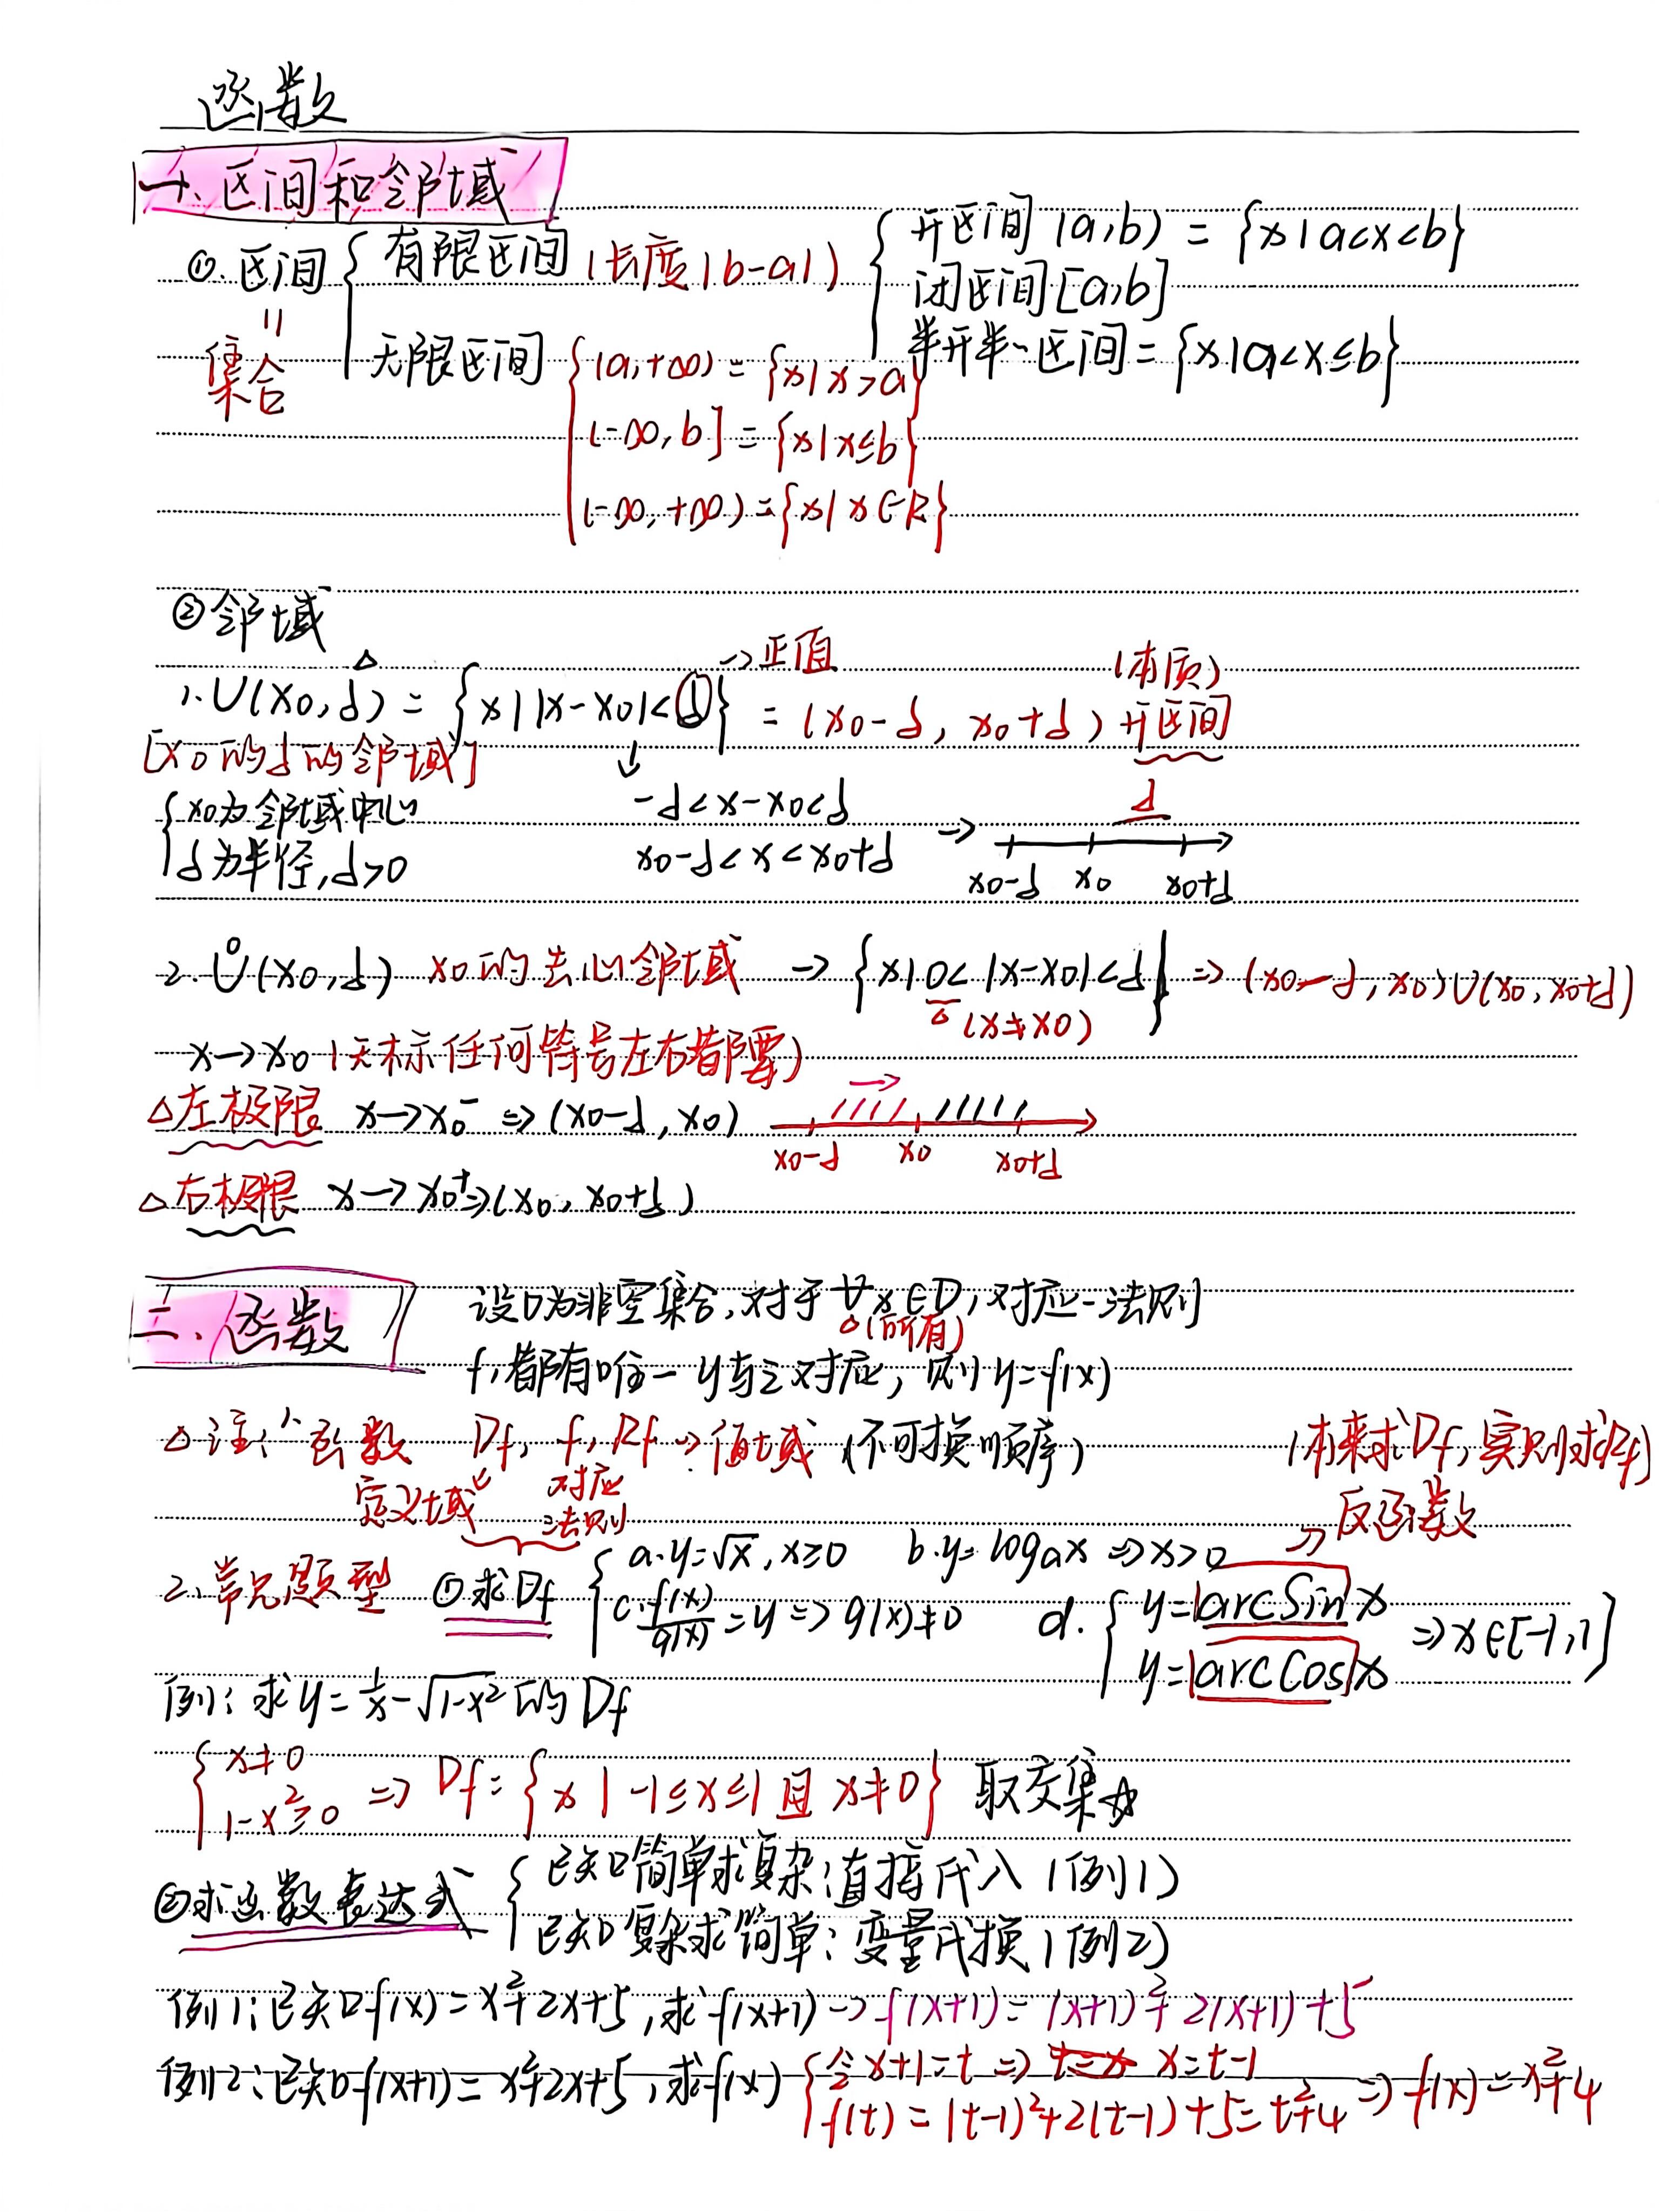 函数
一、区间和邻域
①. 区间 { 有限区间 (长度|b-a|) { 开区间 (a,b) = {x|a<x<b}
闭区间 [a,b]
半开半、区间 = {x|a<x≤b}
= 集合
无限区间 { (a,+∞) = {x|x>a}
(-∞,b] = {x|x≤b}
(-∞,+∞) = {x|x∈R}
② 邻域
1. U(x0,δ) = {x||x-x0|<δ} = (x0-δ, x0+δ) 开区间
→正值 (本质)
[x0的δ的邻域] ↓
{ x0为邻域中心 -δ<x-x0<δ
δ为半径,δ>0 x0-δ<x<x0+δ → δ
x0-δ x0 x0+δ
2. Ů(x0,δ) x0的去心邻域 → {x|0<|x-x0|<δ} ⇒ (x0-δ,x0)∪(x0,x0+δ)
(x≠x0)
x→x0 (无标任何符号左右都要)
△左极限 x→x0⁻ ⇒ (x0-δ,x0)
x0-δ x0 x0+δ
△右极限 x→x0⁺ ⇒ (x0,x0+δ)
二、函数
设D为非空集合,对于∀x∈D,对应一法则
△(所有)
f,都有唯一y与之对应,则y=f(x)
△注:1、函数 Df, f, Rf→值域 (不可换顺序)
定义域 对应法则
(本来求Df,实则求Rf)
→反函数
2、常见题型 ①求Df { a. y=√x, x≥0 b. y=logax ⇒ x>0
c. f(x)/g(x)=y ⇒ g(x)≠0 d. { y=arcsinx
y=arccosx ⇒ x∈[-1,1]
例:求y=1/x-√1-x² 的Df
{ x≠0
1-x²≥0 ⇒ Df={x|-1≤x≤1 且 x≠0} 取交集☆
②求函数表达式 { 已知简单求复杂:直接代入 (例1)
已知复杂求简单:变量代换 (例2)
例1:已知f(x)=x²+2x+5,求f(x+1) → f(x+1)=(x+1)²+2(x+1)+5
例2:已知f(x+1)=x²+2x+5,求f(x) { 令x+1=t ⇒ x=t-1
f(t)=(t-1)²+2(t-1)+5=t²+4 ⇒ f(x)=x²+4